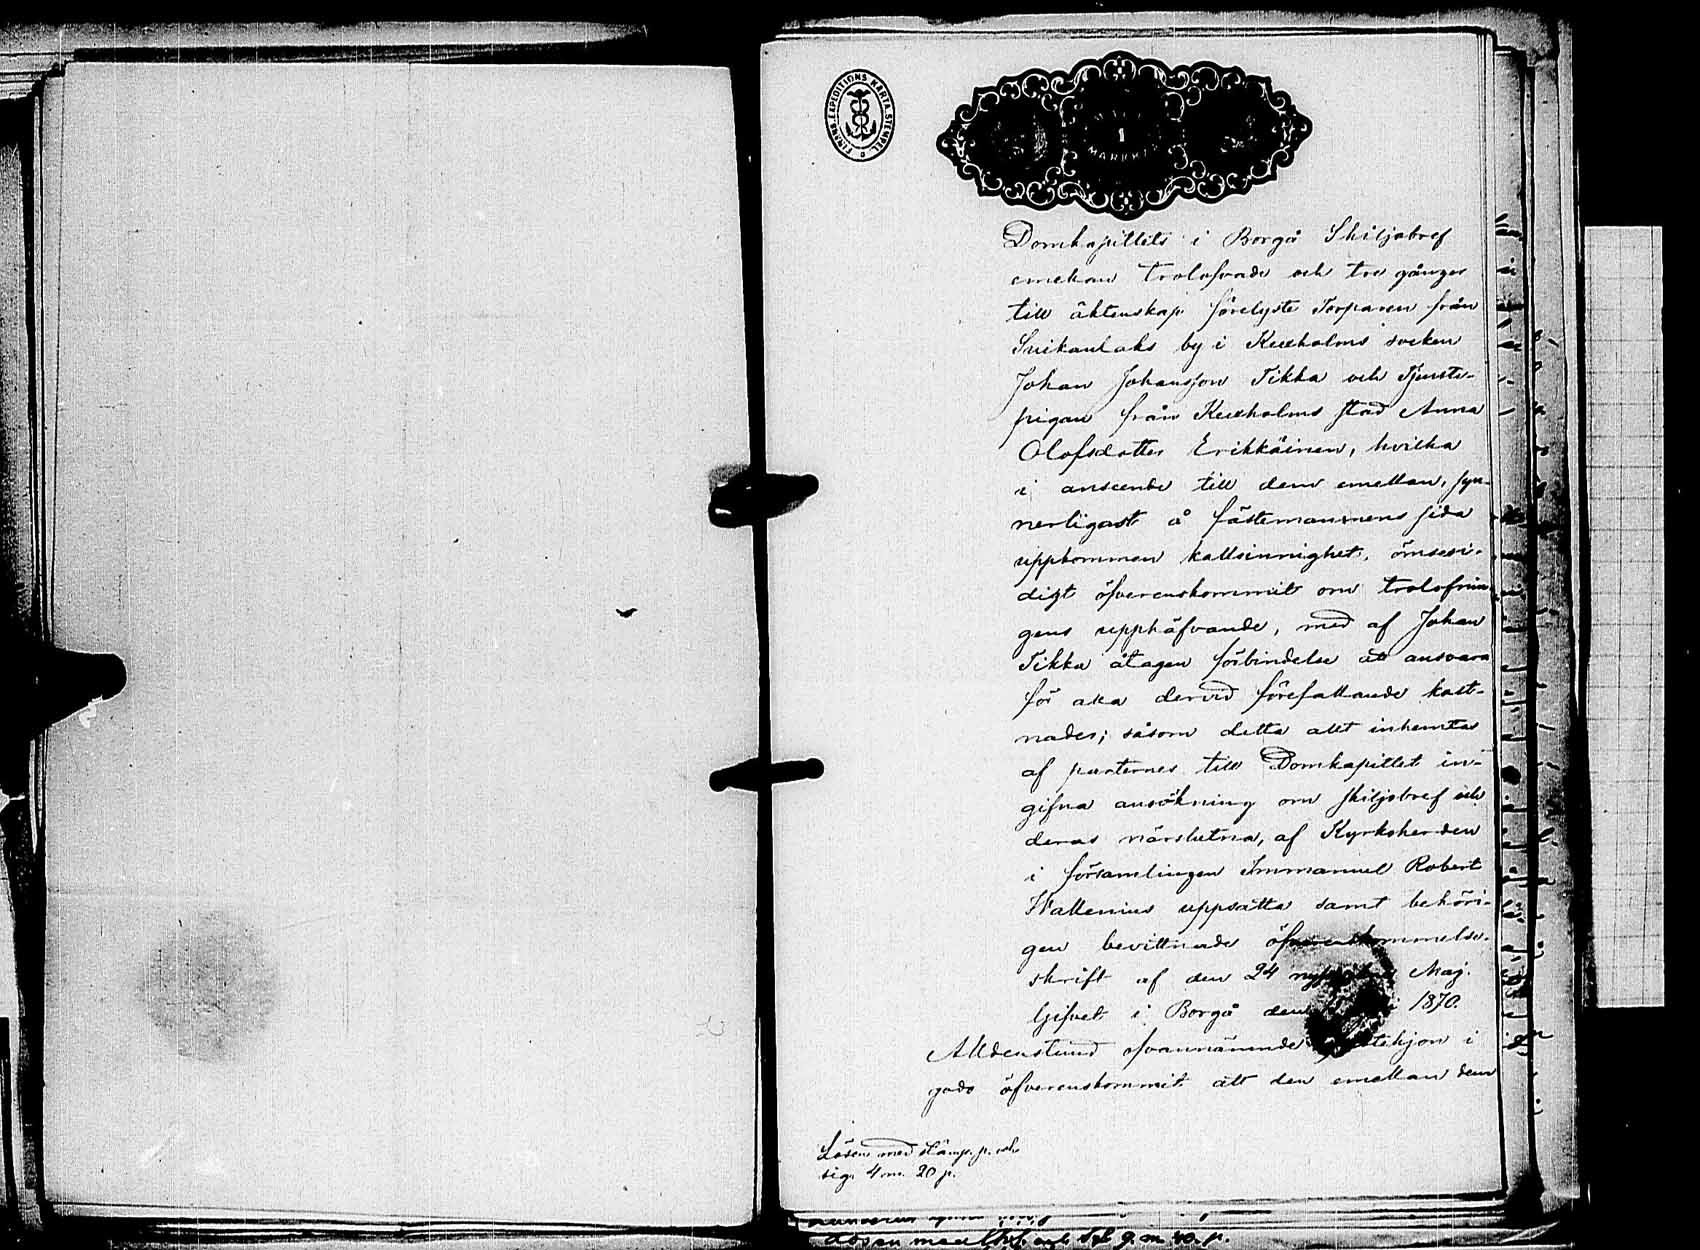 FINSKA EXPEDITIONS KARTA STEMPEL
1
MARKKA
Domkapitlets i Borgå Skiljobref
emellan trolofvade och tre gånger
till äktenskap förelyste Torparen från
Suikanlaks by i Kexholms socken
Johan Johansson Tikka och Tjenste-
pigan från Kexholms stad Anna
Olofsdotter Erikkäinen, hvilka
i anseende till dem emellan, syn-
nerligast å fästemannens sida
uppkommen kallsinnighet, ömsesi-
digt öfverenskommit om trolofnin
gens upphäfvande, med af Johan
Tikka åtagen förbindelse att ansvara
för alla dervid förefallande kost-
nader; såsom detta allt inhemtas
af parternes till Domkapitlet in-
gifna ansökning om skiljobref och
deras närslutna, af Kyrkoherden
i församlingen Immanuel Robert
Wallenius uppsatta samt behöri-
gen bevittnade öfverenskommelse-
skrift af den 24 Maj.
Gifvet i Borgå den 1870.
Alldenstund ofvannämnde i
godo öfverenskommit att den emellan dem
Lösen med stämp. p. och
sig. 4 m. 20 p.